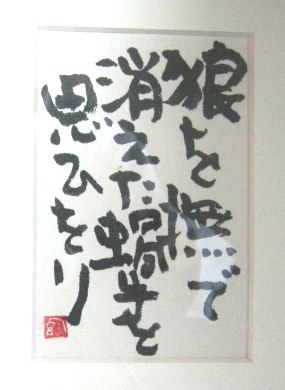 狼を撫で
消えた蝸牛を
思ひをり